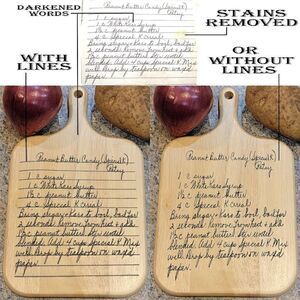 DARKENED
WORDS
STAINS
REMOVED
WITH
LINES
OR
WITHOUT
LINES
Peanut Butter Candy (Special K)
Patsy
1 C sugar
1 C White Karo Syrup
1½ C peanut butter
4 C Special K cereal
Bring sugar & Karo to boil, boil for
2 seconds remove from heat & add
1½ C peanut butter stir until
blended. Add 4 cups Special K Mix
well. Drop by teaspoon on wax'd
paper.
Peanut Butter Candy (Special K)
1 C sugar
1 C White Karo Syrup
1½ C peanut butter
4 C Special K cereal
Bring sugar & Karo to boil, boil for
2 seconds remove from heat & add
1½ C peanut butter stir until
blended. Add 4 cups Special K Mix
well. Drop by teaspoon on wax'd
paper.
Peanut Butter Candy (Special K)
1 C sugar
1 C White Karo Syrup
1½ C peanut butter
4 C Special K cereal
Bring sugar & Karo to boil, boil for
2 seconds remove from heat & add
1½ C peanut butter stir until
blended. Add 4 cups Special K Mix
well. Drop by teaspoon on wax'd
paper.